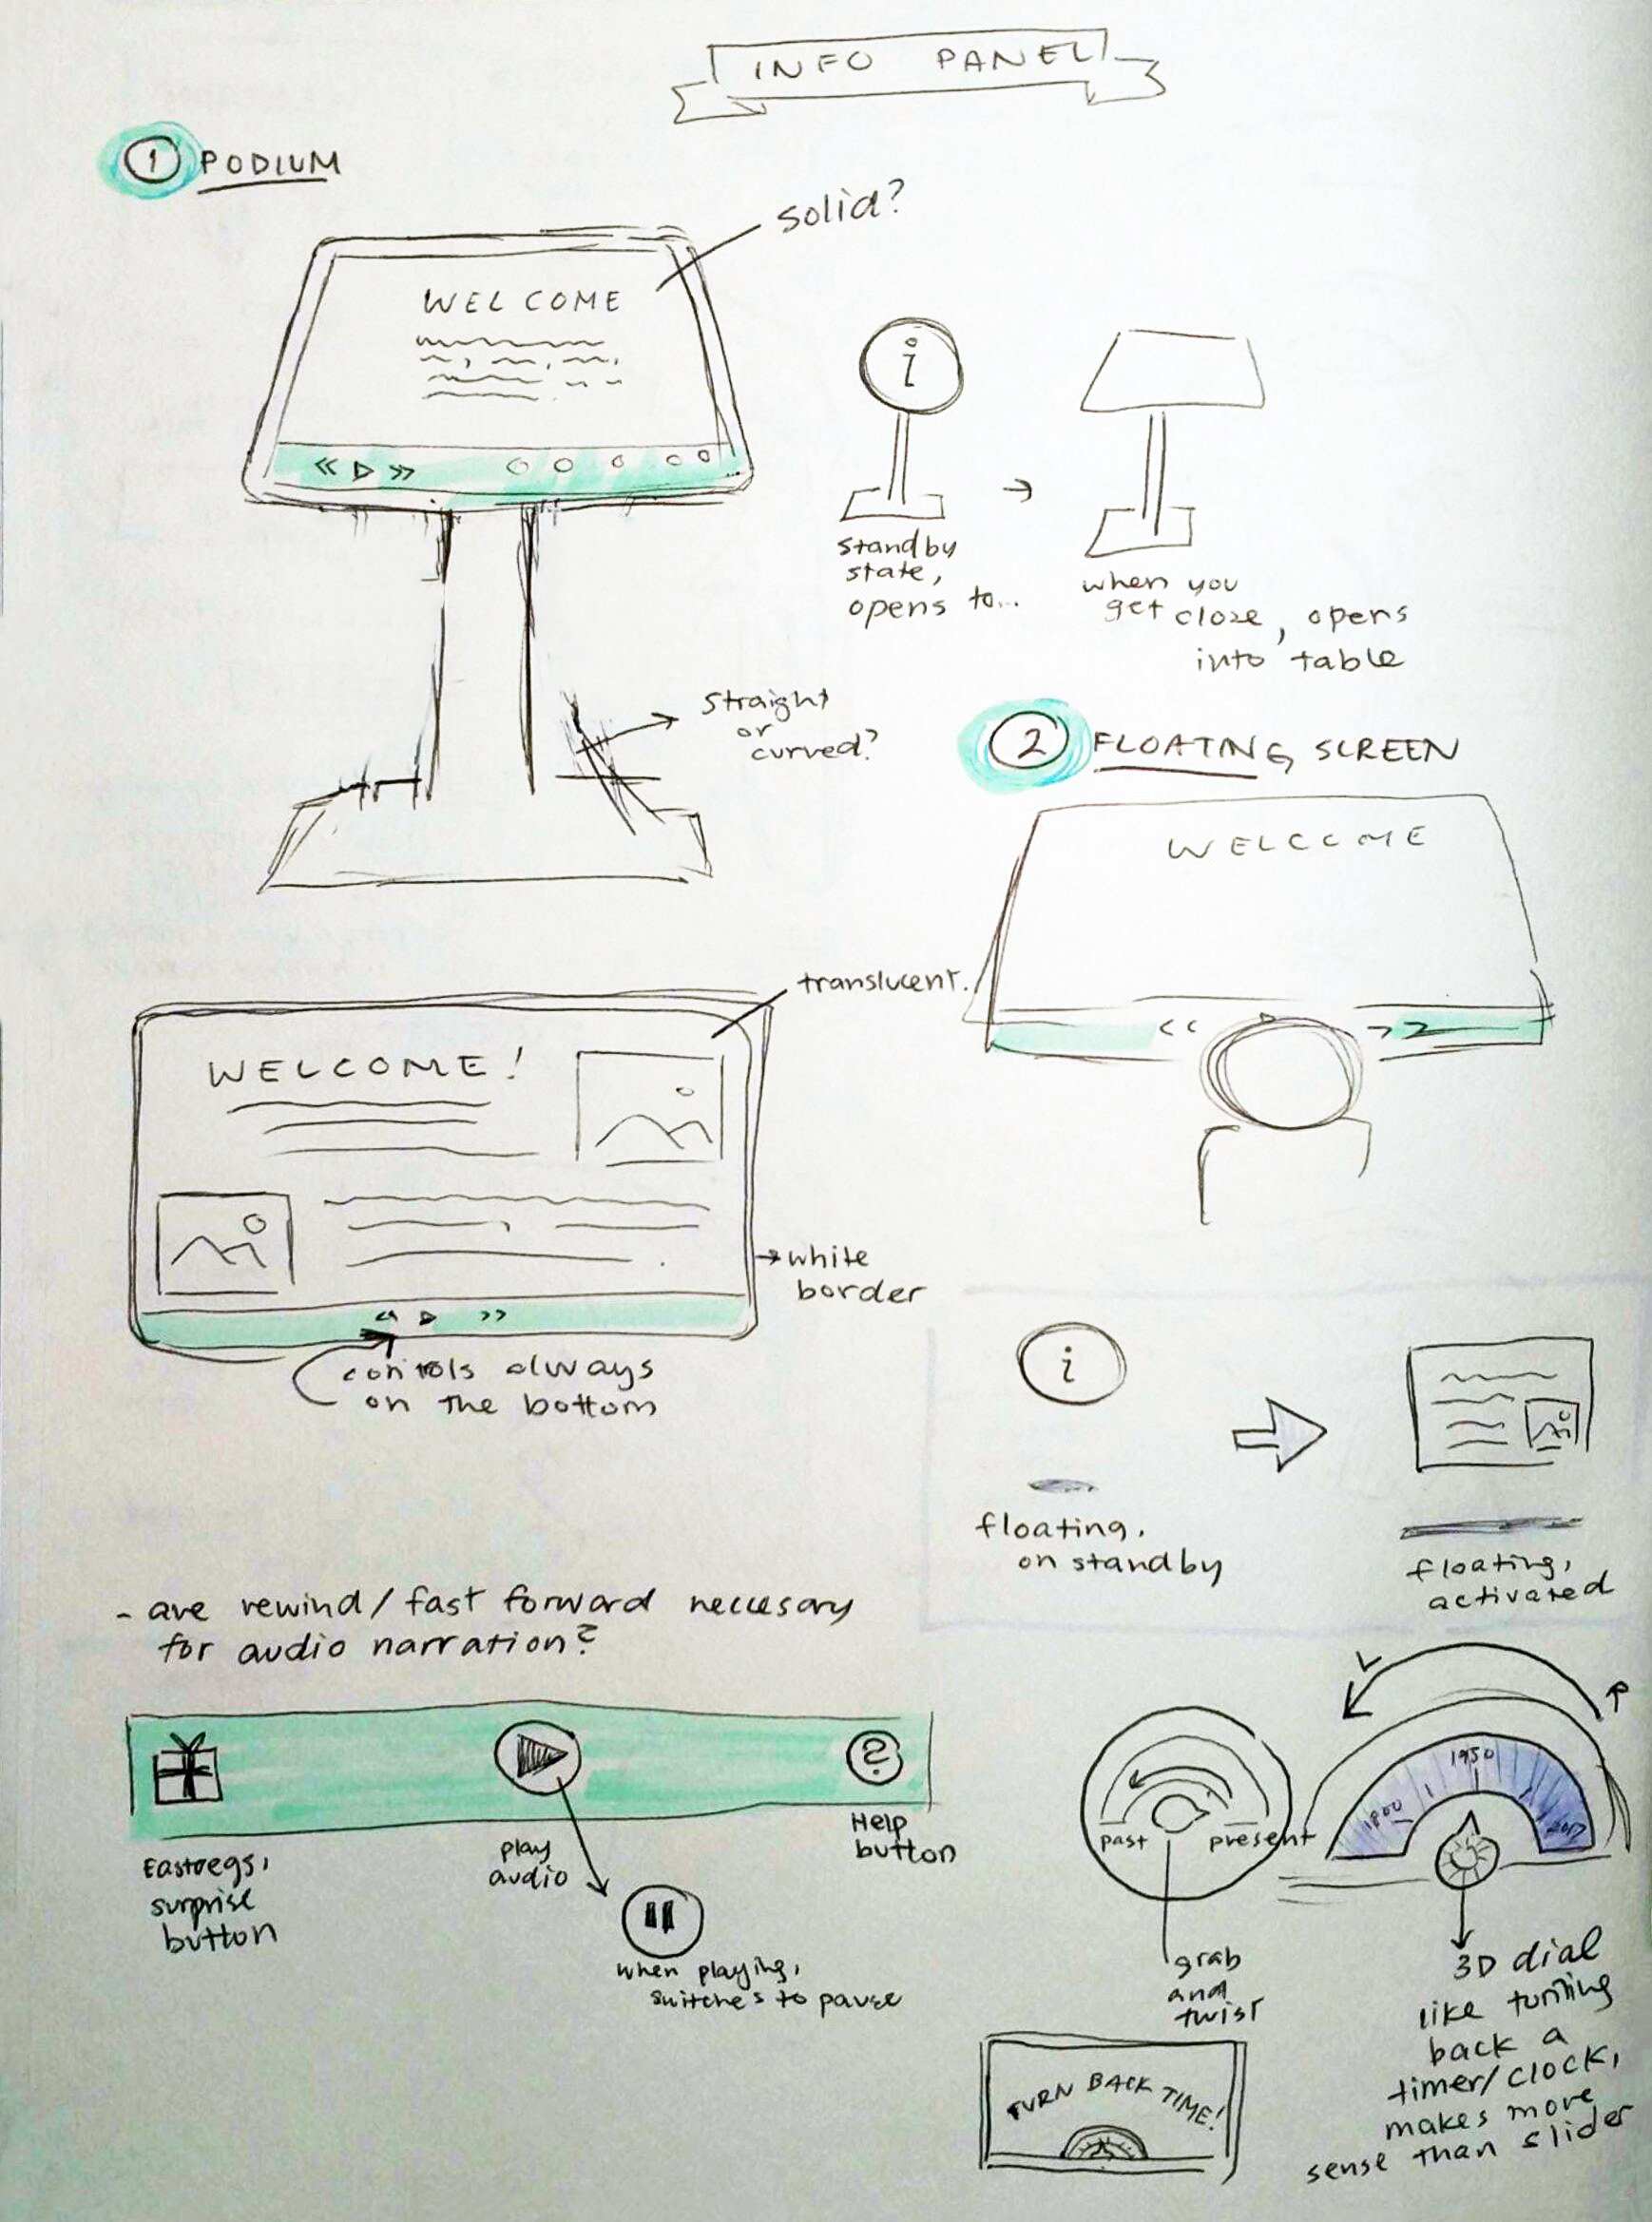 INFO PANEL
1 PODIUM
solid?
WELCOME
i
standby
state,
opens to...
when you
get close, opens
into table
straight
or
curved?
2 FLOATING SCREEN
WELCOME
translucent.
WELCOME!
white
border
controls always
on the bottom
i
floating,
on standby
floating,
activated
- are rewind/fast forward neccesary
for audio narration?
?
Eastregs,
surprise
button
play
audio
Help
button
when playing,
switches to pause
past present
L
R
1800
1950
2017
grab
and
twist
TURN BACK TIME!
3D dial
like turning
back a
timer/clock,
makes more
sense than slider